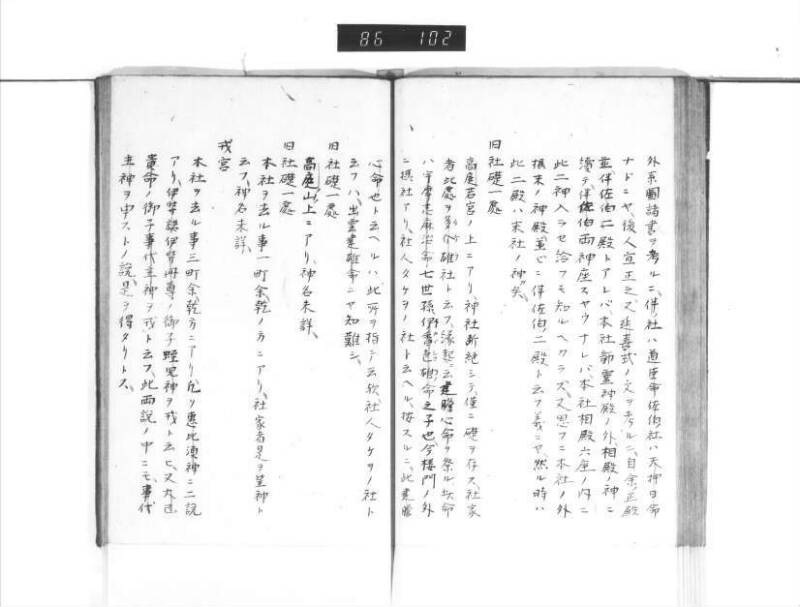 86 102
外系圖諸書ヲ考ルニ、伴ノ社ハ道臣命佐伯社ハ天押日命
ナドニヤ、後人宣正之又延喜式ノ文ヲ考ルニ、自余ノ正殿
並伴佐伯二殿トアレバ本社ノ外、相殿ノ神ニ
伴佐伯両神座スヤウナレバ本社相殿六座ノ内ニ
此二神入ラセ給フモ知ルヘクラズ、又思フニ本社ノ外
攝末ノ神殿並ニ伴佐伯ノ二殿ト云フ義ニヤ、然ル時ハ
此二殿ハ末社ノ神
旧社礎一處
高庭若宮ノ上ニアリ神社断絶シテ、僅ニ礎ヲ存ス、社家
者此處ヲ 社ト云フ、縁起ニ云建膽心命ヲ祭ル此命
ハ宇摩志麻治命七世孫 命之子也、今楼門ノ外
ニ摂社アリ、社人タケヲノ社ト云ヘル、按スルニ、此建膽
心命也ト云ヘルハ、此所ヲ指テ云歟、社人タケヲノ社ト
云フハ、出雲建雄命ニヤ知難シ、
旧社礎一處
高庭山上ニアリ、神名未詳、
旧社礎一處
本社ヲ去ル事一町余、乾ノ方ニアリ、社家者是ヲ星神ト
云フ、神名未詳、
戎宮
本社ヲ去ル事三町余、乾方ニアリ凡ソ恵比須神ニ二説
アリ、伊弉諾伊弉冊尊ノ御子蛭児神ヲ戎ト云ヒ、又大己
貴命ノ御子事代主神ヲ戎ト云フ、此両説ノ中ニモ、事代
主神ヲ申ストノ説、是ヲ得タリトス、